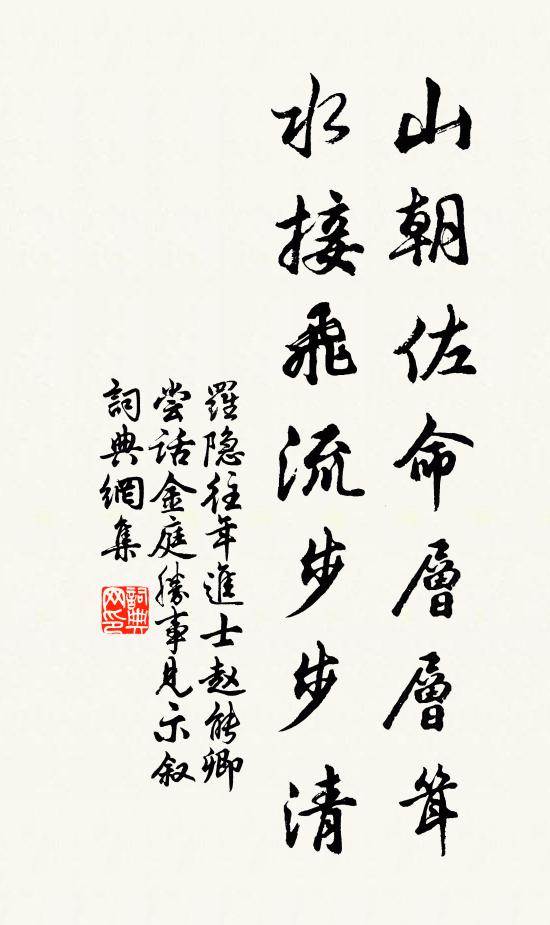 山朝佐命層層耸
水接飛流步步清
羅隐往年進士赵能卿
尝话金庭勝事見示叙
詞典網集
詞典網印